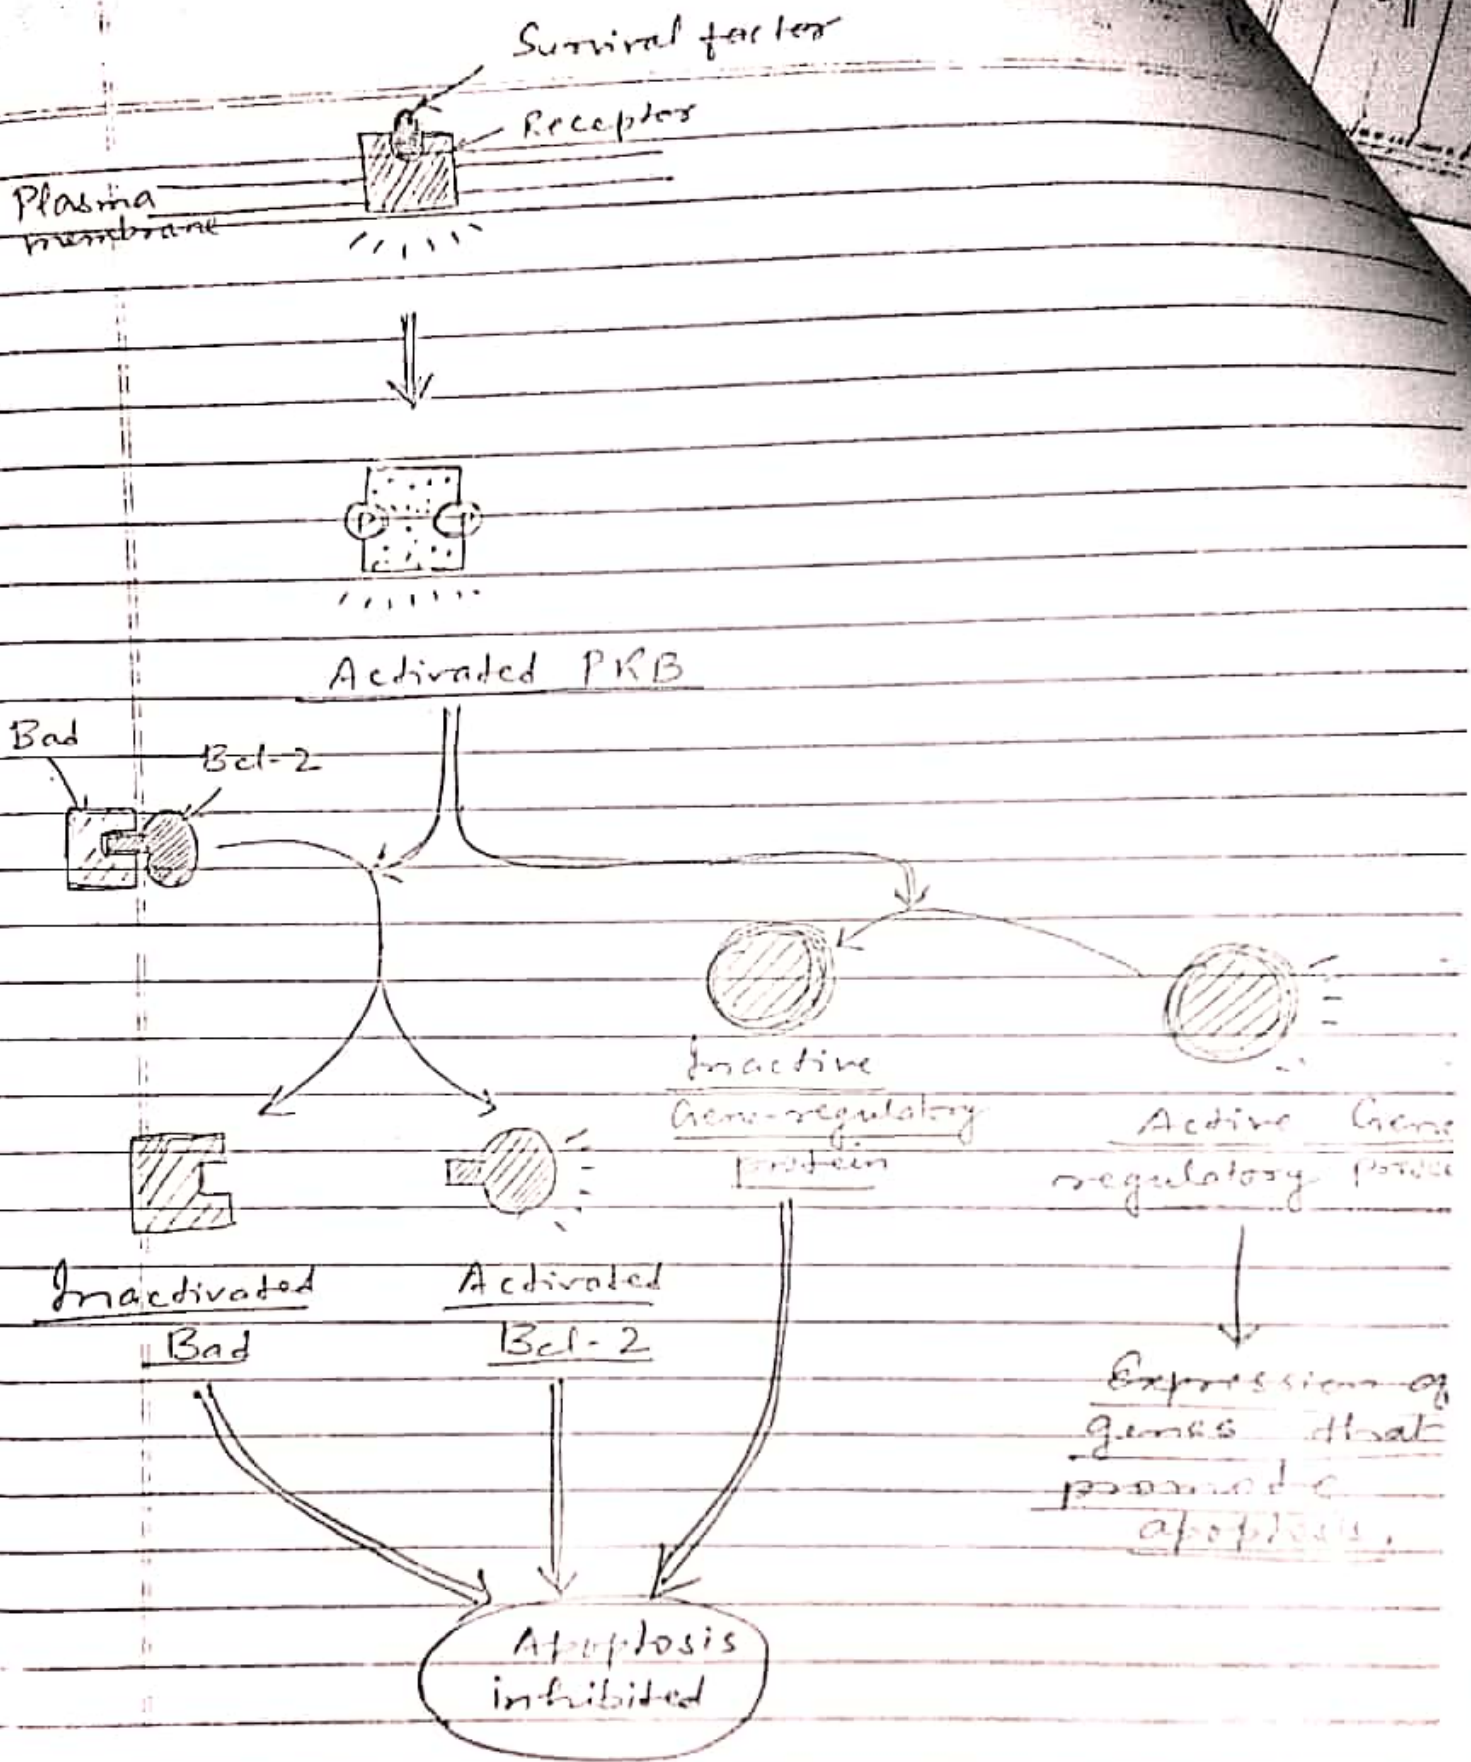 Survival factor
Receptor
Plasma
membrane
P P
Activated PKB
Bad
Bcl-2
Inactive
Gene-regulatory
protein
Active Gene
regulatory
Inactivated
Bad
Activated
Bcl-2
Expression of
genes that
promote
apoptosis.
Apoptosis
inhibited